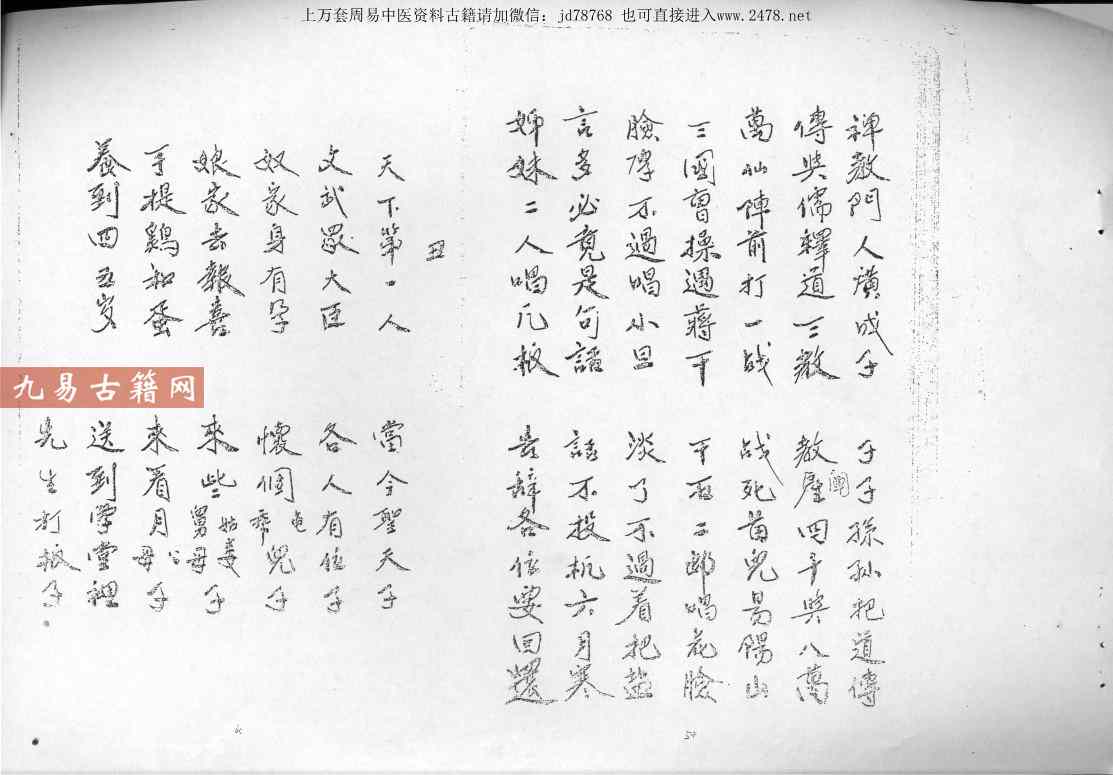 上万套周易中医资料古籍请加微信：jd78768 也可直接进入www.2478.net
禅教門人慎成子 子子孫孫把道傳
傳與儒釋道三教 教壓四千與八萬
闽
萬仙陣前打一战 战死首兒易陽山
三國曹操遇蔣干 干 二郎唱花臉
臉厚不過唱小旦 淡了不過着把盐
言多必竟是句話 話不投机六月寒
姊妹二人唱几板 告辞各位要回還
丑
天下第一人 當今聖天子
文武眾大臣 各人有位子
奴家身有孕 懷個 兒子
娘家去報喜 來些 舅母 姑 子
手提鷄和蛋 來看月母 公 子
養到四五岁 送到学堂裡
先生打板子
九易古籍网
54